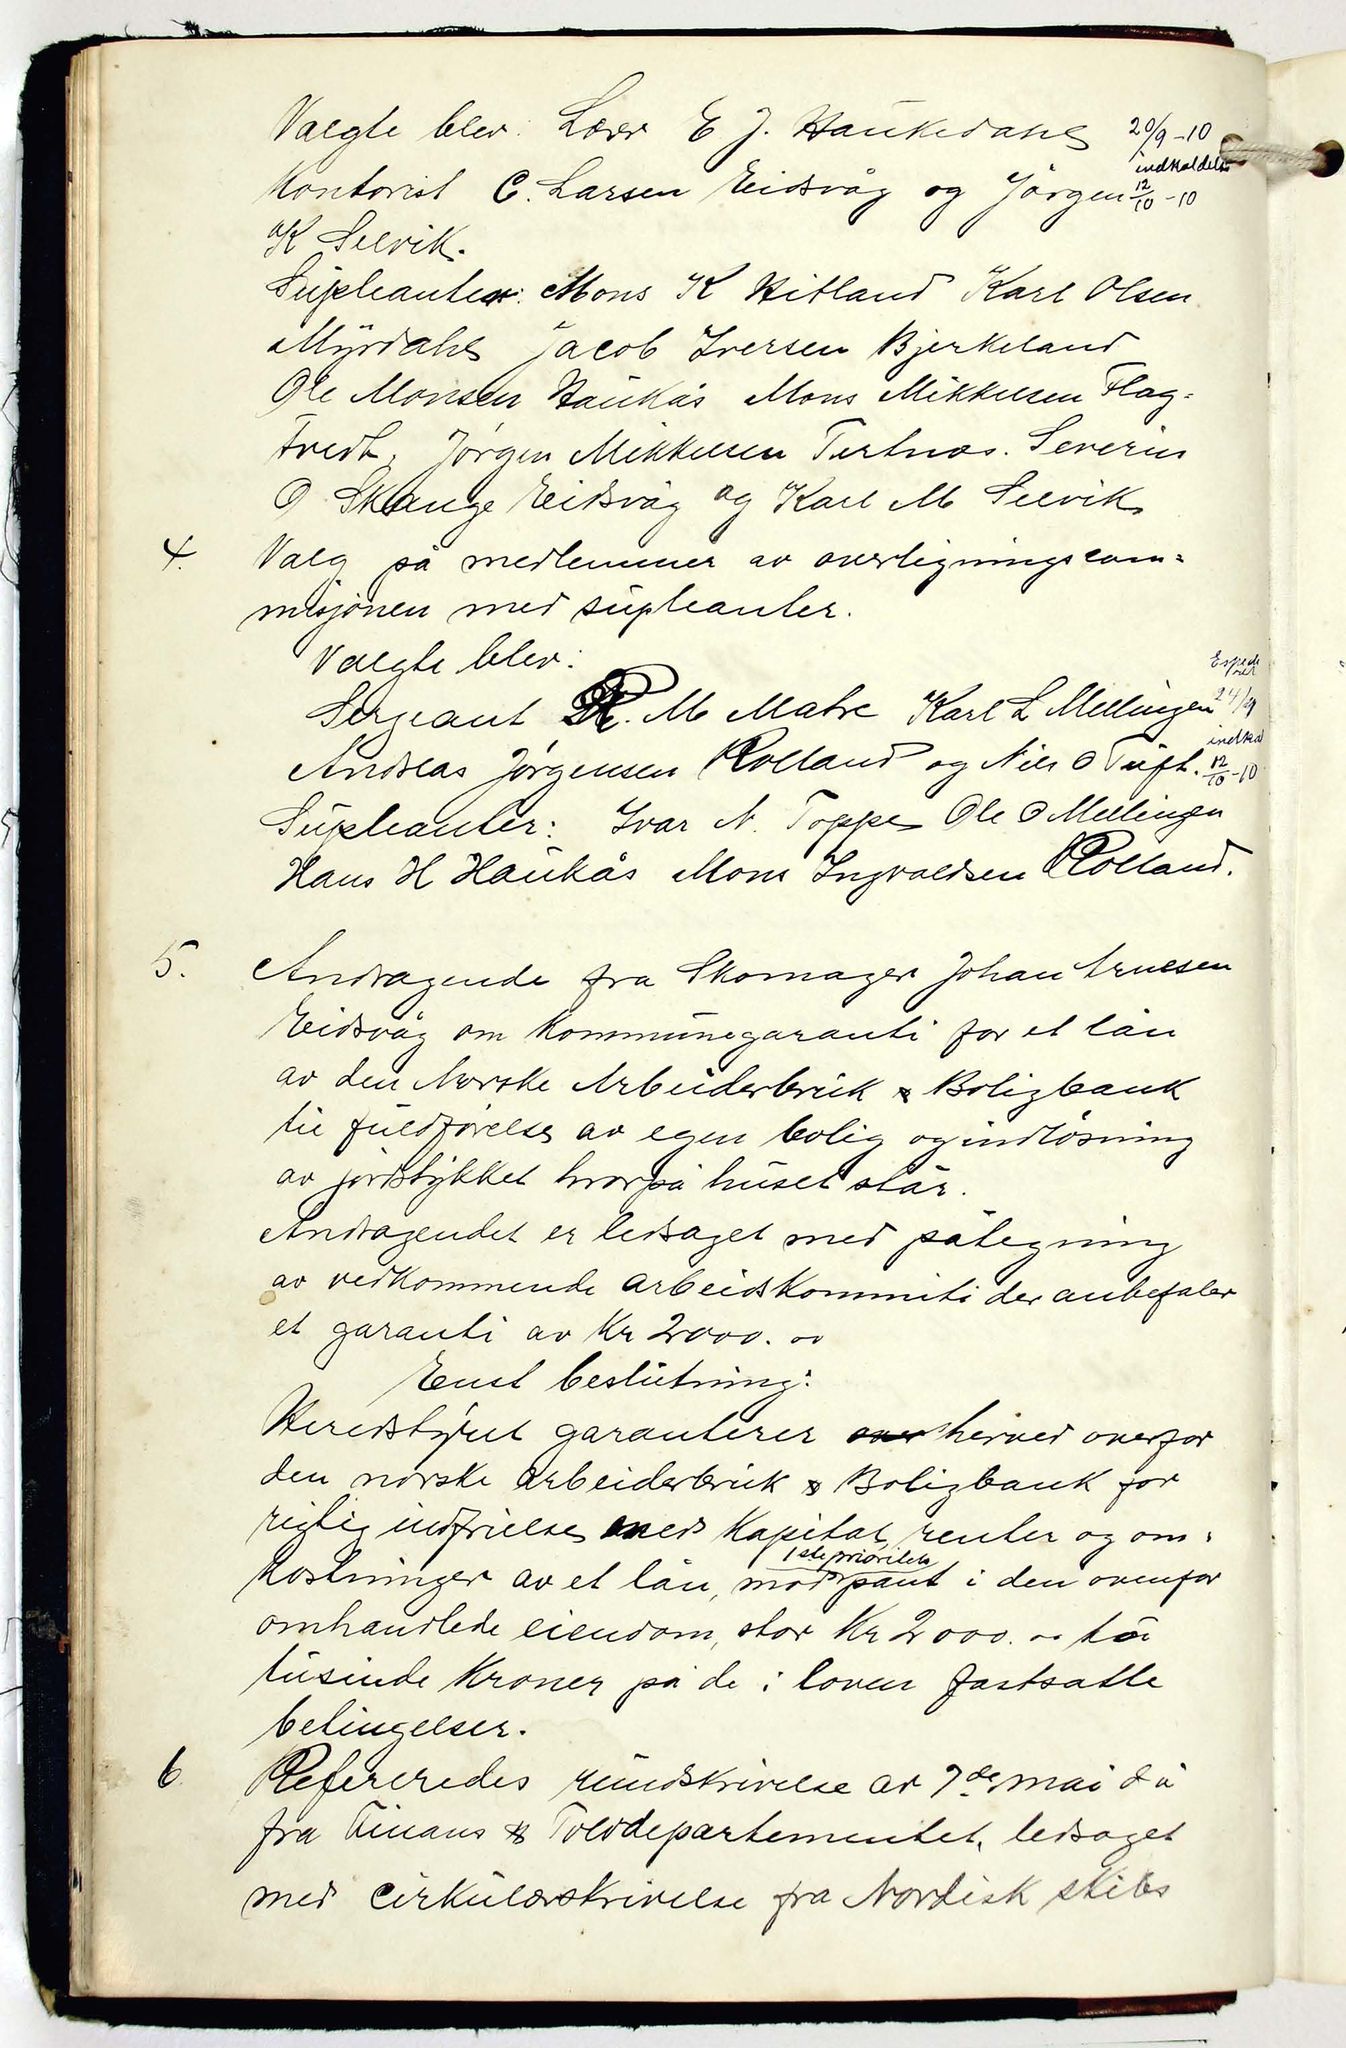 Valgte blev: Lærer E J. Haukedahl 20/9-10
Kontorist C. Larsen Eidsvåg og Jörgen indkaldelse 12/10-10
K Selvik.
Supleanter: Mons K Hitland Karl Olsen
Myrdahl Jacob Iversen Bjerkeland
Ole Monsen Haukås Mons Mikkelsen Flag-
tvedt, Jörgen Mikkelsen Tertnæs. Severin
O Skauge Eidsvåg og Karl M Selvik.
4. Valg på medlemmer av overligningscom-
misjonen med supleanter.
Valgte blev:
Sergeant R. M Matre Karl L Mellingen 24/9
Andreas Jörgensen Rolland og Nils O Tuft. indkal 12/10-10
Supleanter: Ivar N. Toppe Ole O Mellingen
Hans H Haukås Mons Ingvaldsen Rolland.
5. Andragende fra Skomager Johan Arnesen
Eidsvåg om Kommunegaranti for et lån
av den Norske Arbeiderbruk & Boligbank
til fuldförelse av egen bolig og indlösning
av jordstykket hvorpå huset står.
Andragendet er ledsaget med påtegning
av vedkommende arbeidskommite der anbefaler
et garanti av Kr 2000. oo
Enst beslutning:
Heredstyret garanterer herved overfor
den norske arbeiderbruk & Boligbank for
rigtig indfrielse med Kapital, renter og om-
kostninger av et lån, mod 1ste prioritets pant i den ovenfor
omhandlede eiendom, stor Kr 2000. oo to
tusinde Kroner på de i loven fastsatte
betingelser.
6 Refereredes rundskrivelse av 7de mai d å
fra Finans & Tolddepartementet, ledsaget
med cirkulærskrivelse fra Nordisk skibs